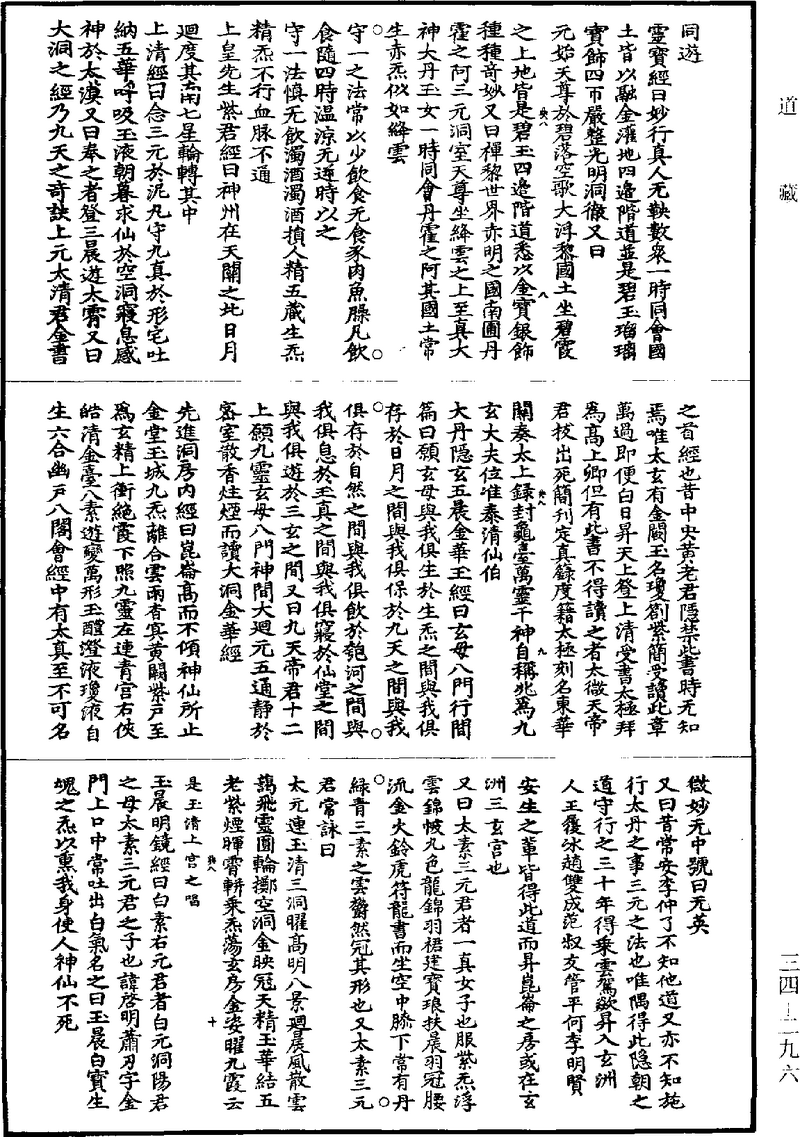 道藏
同遊
靈寶經曰妙行真人无鞅數衆一時同會國
土皆以融金灌地四邊階道並是碧玉瑠璃
寳飾四面嚴整光明洞徹又曰
元始天尊於碧落空歌大浮黎國土坐碧霞
之上地皆是碧玉四邊階道悉以金寳銀飾
種種奇妙又曰禪黎世界赤明之國南圃丹
霍之阿三元洞室天尊坐絳雲之上至真大
神大丹玉女一時同會丹霍之阿其國土常
生赤炁似如絳雲
守一之法常以少飲食无食豕肉魚臊凡飲
食隨四時温涼无逆時以之
守一法慎无飲濁酒濁酒損人精五蔵生炁
精炁不行血脉不通
上皇先生紫君經曰神州在天關之北日月
迴度其南七星輪轉其中
上清經曰念三元於泥丸守九真於形宅吐
納五華呼吸玉液朝暮求仙於空洞寢息感
神於太漠又曰奉之者登三晨遊太霄又曰
大洞之經乃九天之奇訣上元太清君金書
之首經也昔中央黄老君隱禁此書時无知
焉唯太玄有金闕玉名瓊劄紫簡受讀此章
萬過即便白日昇天上登上清受書太極拜
爲高上卿但有此書不得讀之者太微天帝
君拔出死簡刊定真籙度籍太極刻名東華
關奏太上録封龜臺萬靈千神自稱兆爲九
玄大夫位准泰清仙伯
大丹隱玄五晨金華玉經曰玄母八門行間
篇曰願玄母與我俱生於生炁之間與我俱
存於日月之間與我俱保於九天之間與我
俱存於自然之間與我俱飲於匏河之間與
我俱息於玉真之間與我俱寢於仙堂之間
與我俱遊於三玄之間又曰九天帝君十二
上願九靈玄母八門神間大迴元五通靜於
密室散香炷煙而讀大洞金華經
先進洞房内經曰崑崙高而不傾神仙所止
金堂玉城九炁離合雲雨杳冥黄闕紫戸至
爲玄精上衝絶霞下照九靈左連青宫右俠
皓清金臺八素遊變萬形玉醴澄液瓊液自
生六合幽戸八閣會經中有太真至不可名
微妙无中號曰无英
又曰昔常安李仲了不知他道又亦不知施
行太丹之事三元之法也唯隅得此隐朝之
道守行之三十年得乗雲駕歘昇入玄洲
人王覆冰趙雙成范叔友管平何李明賢
安生之軰皆得此道而昇崑崙之房或在玄
洲三玄宫也
又曰太素三元君者一真女子也服紫炁浮
雲錦帔九色龍錦羽裙建寳琅扶晨羽冠腰
流金火鈴虎符龍書而坐空中膝下常有丹
緑青三素之雲欝然冠其形也又太素三元
君常詠曰
太元連玉清三洞曜高明八景迴晨風散雲
藹飛靈圓輪擲空洞金映冠天精玉華結五
老紫煙暉霄軿乗炁蕩玄房金姿曜九霞云
是玉清上宫之唱
玉晨明鏡經曰白素右元君者白元洞陽君
之母太素三元君之子也諱啓明蕭刃字金
門上口中常吐出白氣名之曰玉晨白寳生
魂之炁以熏我身使人神仙不死
三四—二九六